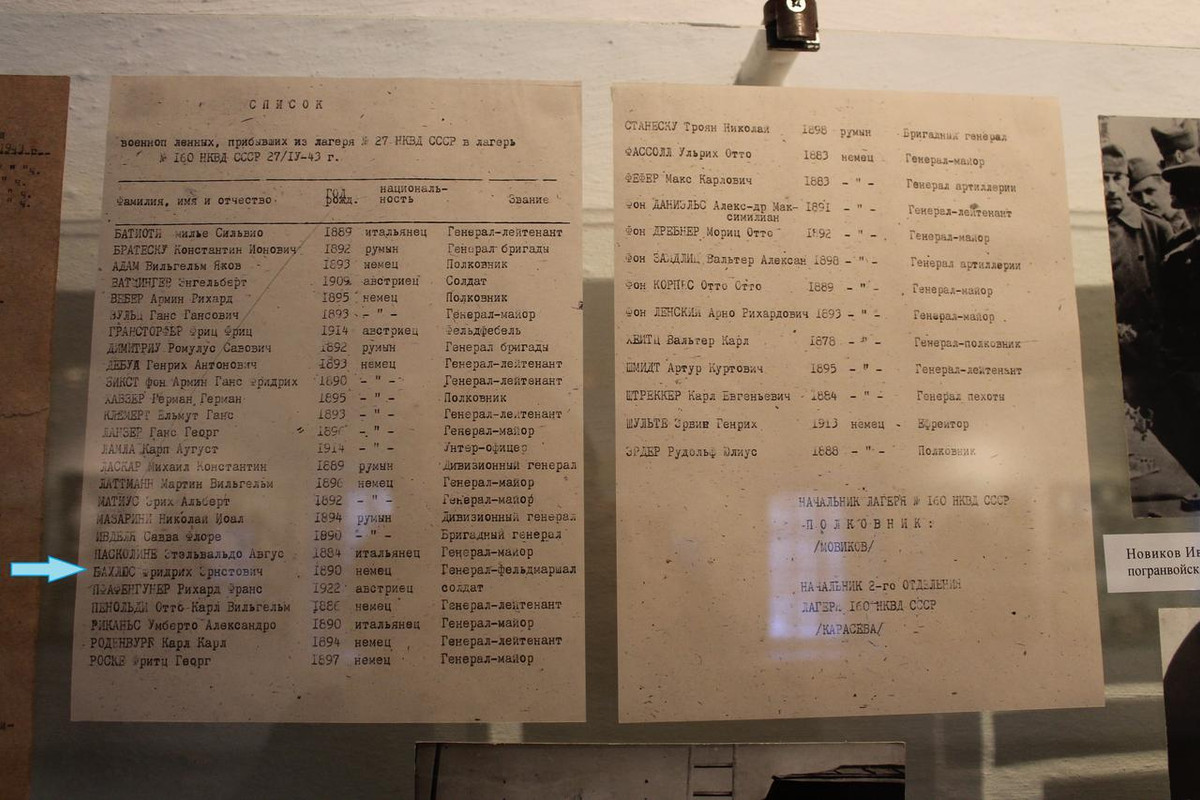 СПИСОК
военноп ленных, прибывших из лагеря № 27 НКВД СССР в лагерь
№ 160 НКВД СССР 27/IУ-43 г.
Фамилия, имя и отчество Год рожд. националь-ность Звание
БАТИОТИ милье Сильвио 1889 итальянец Генерал-лейтенант
БРАТЕСКУ Константин Ионович 1892 румын Генерал бригады
АДАМ Вильгельм Яков 1893 немец Полковник
ВАТЦИНГЕР Энгельберт 1909 австриец Солдат
ВЕБЕР Армин Рихард 1895 немец Полковник
ВУЛЬЦ Ганс Гансович 1893 - " - Генерал-майор
ГРАНСТОРФЕР Фриц Фриц 1914 австриец Фельдфебель
ДИМИТРИУ Ромулус Савович 1892 румын Генерал бригады
ДЕБУА Генрих Антонович 1893 немец Генерал-лейтенант
ЗИКСТ фон Армин Ганс Фридрих 1890 - " - Генерал-лейтенант
Герман Герман 1895 - " - Полковник
Ельмут Ганс 1893 - " - Генерал-лейтенант
ЛАНЗЕР Ганс Георг - " - Генерал-майор
ЛАМЛА Карл Аугуст 1914 - " - Унтер-офицер
ЛАСКАР Михаил Константин 1889 румын Дивизионный генерал
ЛАТТМАНН Мартин Вильгельм 1896 немец Генерал-майор
МАГНУС Эрих Альберт 1892 - " - Генерал-майор
МАЗАРИНИ Николай Иоал 1894 румын Дивизионный генерал
Савва Флоре 1890 - " - Бригадный генерал
ПАСКОЛИНЕ Этэльвальдо Авгус 1884 итальянец Генерал-майор
ПАУЛЮС Фридрих Эрнстович 1890 немец Генерал-фельдмаршал
Рихард Франс 1922 австриец солдат
РЕНОЛЬДИ Отто Карл Вильгельм 1886 немец Генерал-лейтенант
РИКАНЬС Умберто Александро 1890 итальянец Генерал-майор
РОДЕНБУРГ Карл Карл 1894 немец Генерал-лейтенант
РОСКЕ Фритц Георг 1897 немец Генерал-майор
СТАНЕСКУ Троян Николай 1898 румын Бригадный генерал
ФАССОЛД Ульрих Отто 1883 немец Генерал-майор
ФЕФЕР Макс Карлович 1883 - " - Генерал артиллерии
Фон ДАНИЭЛЬС Алекс-др Мак- 1891 - " - Генерал-лейтенант
симилиан
Фон ДРЕБНЕР Мориц Отто 1892 - " - Генерал-майор
Фон ЗАЙДЛИЦ Вальтер Алексан 1898 - " - Генерал артиллерии
Фон КОРФЕС Отто Отто 1889 - " - Генерал-майор
Фон ЛЕНСКИЙ Арно Рихардович 1893 - " - Генерал-майор
ХЕЙТЦ Вальтер Карл 1878 - " - Генерал-полковник
ШМИДТ Артур Куртович 1895 - " - Генерал-лейтенант
ШТРЕККЕР Карл Евгеньевич 1884 - " - Генерал пехоты
ШУЛЬТЕ Эрвин Генрих 1913 немец Ефрейтор
ЭРДЕР Рудольф Юлиус 1888 - " - Полковник
НАЧАЛЬНИК ЛАГЕРЯ № 160 НКВД СССР
-ПОЛКОВНИК:
/НОВИКОВ/
НАЧАЛЬНИК 2-го ОТДЕЛЕНИЯ
ЛАГЕРЯ 160 НКВД СССР
/КАРАСЕВА/
Новиков Ив
погранвойск